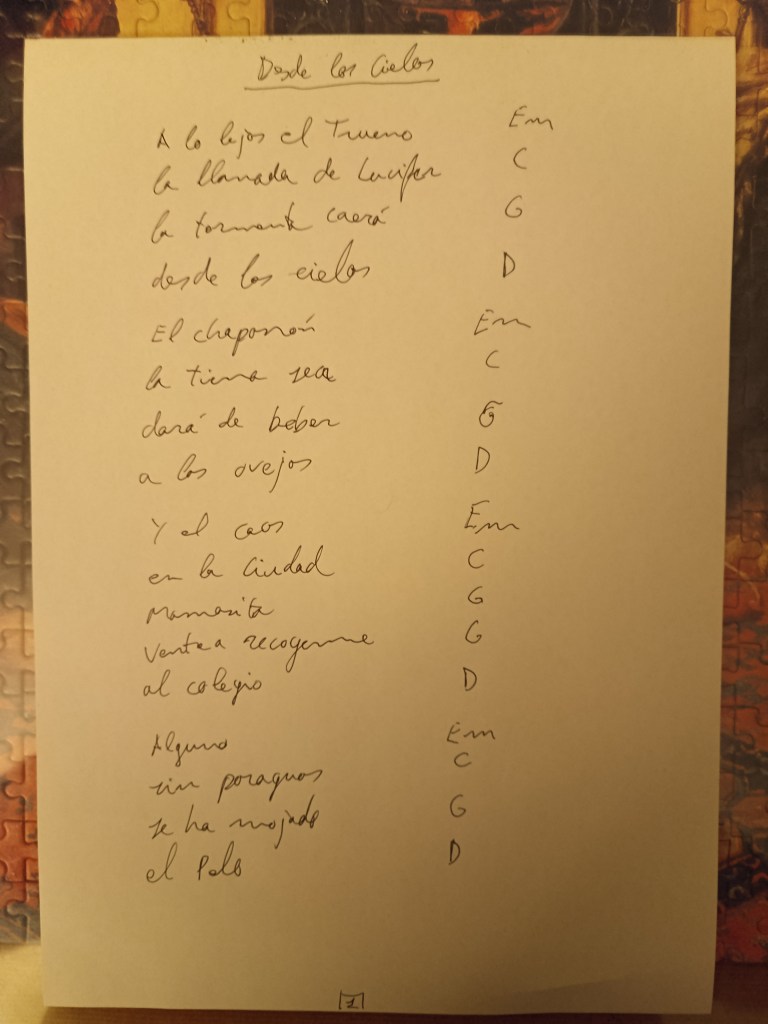 Desde los Cielos
A lo lejos el Trueno Em
la llamada de Lucifer C
la tormenta caerá G
desde los cielos D
El chaparrón Em
la tierra seca C
dará de beber G
a los ovejos D
Y el caos Em
en la Ciudad C
Mamasita G
vente a recogerme G
al colegio D
Alguno Em
sin paraguas C
se ha mojado G
el Pelo D
1